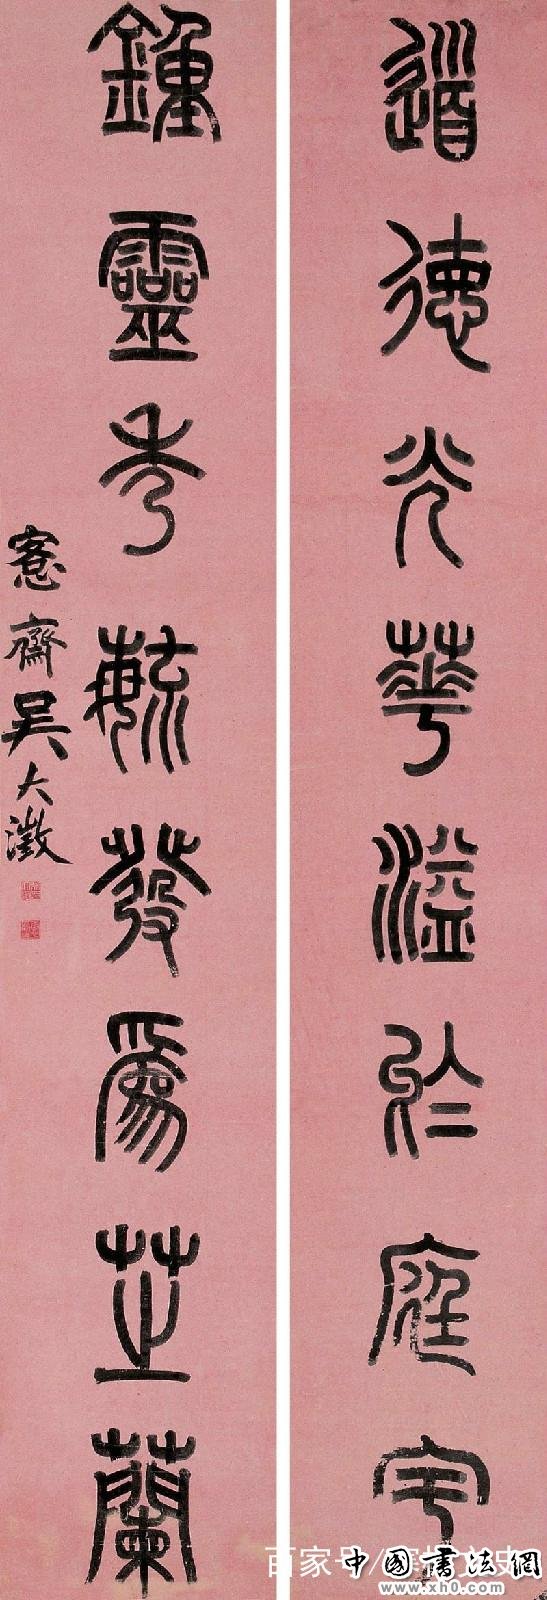 道德光華溢於庭宇
鍾靈秀毓發爲芝蘭
愙齋吴大澂
中國書法網
www.xh0.com